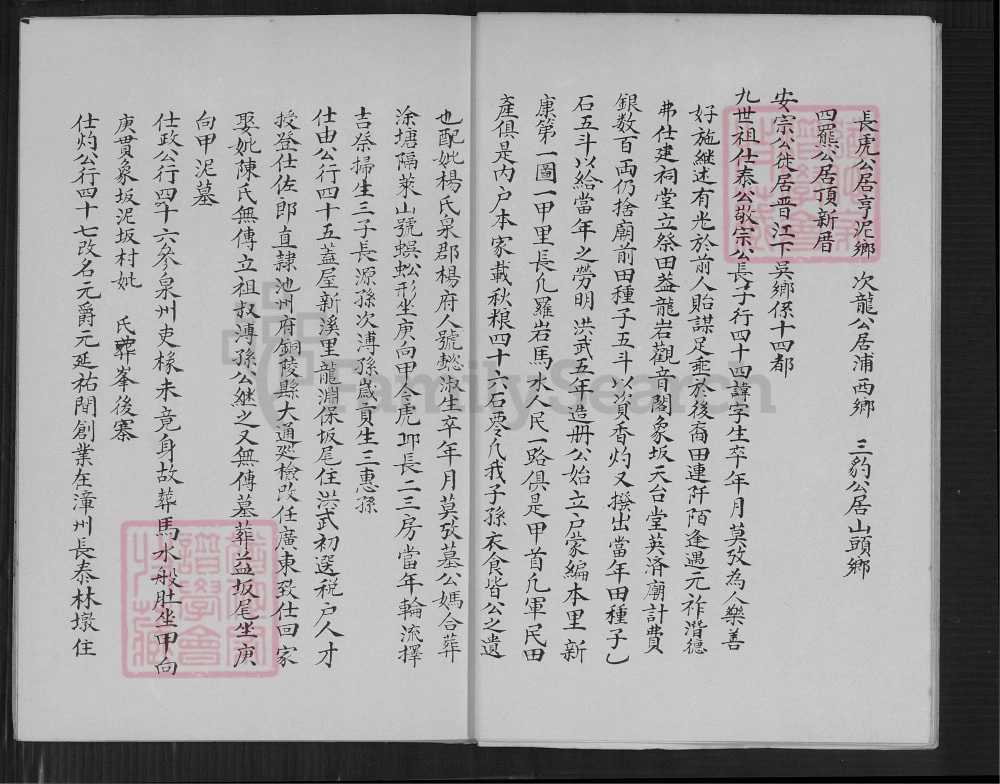 長虎公居亨泥鄉　次龍公居浦西鄉　三豹公居山頭鄉
四羆公居頂新厝
安宗公徙居晋江下吳鄉係十四都
九世祖仕泰公敬宗公長子行四十四諱字生卒年月莫攷為人樂善
好施継述有光於前人貽謀足垂於後裔田連阡陌逢遇元祚潛德
弗仕建祠堂立祭田益龍岩觀音閣象坂天台堂英済廟計費
銀数百両仍捨廟前田種子五斗以資香灼又撥出當年田種子乚
石五斗以給當年之勞明洪武五年造册公始立户蒙編本里新
康第一圖一甲里長凣羅岩馬水人民一路俱是甲首凣軍民田
產俱是內户本家載秋粮四十六石零凣我子孫衣食皆公之遺
也配妣楊氏泉郡楊府人號懿淑生卒年月莫攷墓公媽合葬
涂塘隔萊山號蜈蚣形坐庚向甲令虎卯長二三房當年輪流擇
吉祭掃生三子長源孫次溥孫歲貢生三惠孫
仕由公行四十五蓋屋新溪里龍淵保坂尾住洪武初選税户人才
授登仕佐郎直隷池州府銅陵縣大通廵檢改任廣東致仕回家
娶妣陳氏無傳立祖叔溥孫公継之又無傳墓葬益坂尾坐庚
向甲泥墓
仕政公行四十六叅泉州吏椽未竟身故葬馬水般肚坐甲向
庚貫象坂泥坂村妣　氏葬峯後寨
仕灼公行四十七改名元爵元延祐間創業在漳州長泰林墩住
FamilySearch